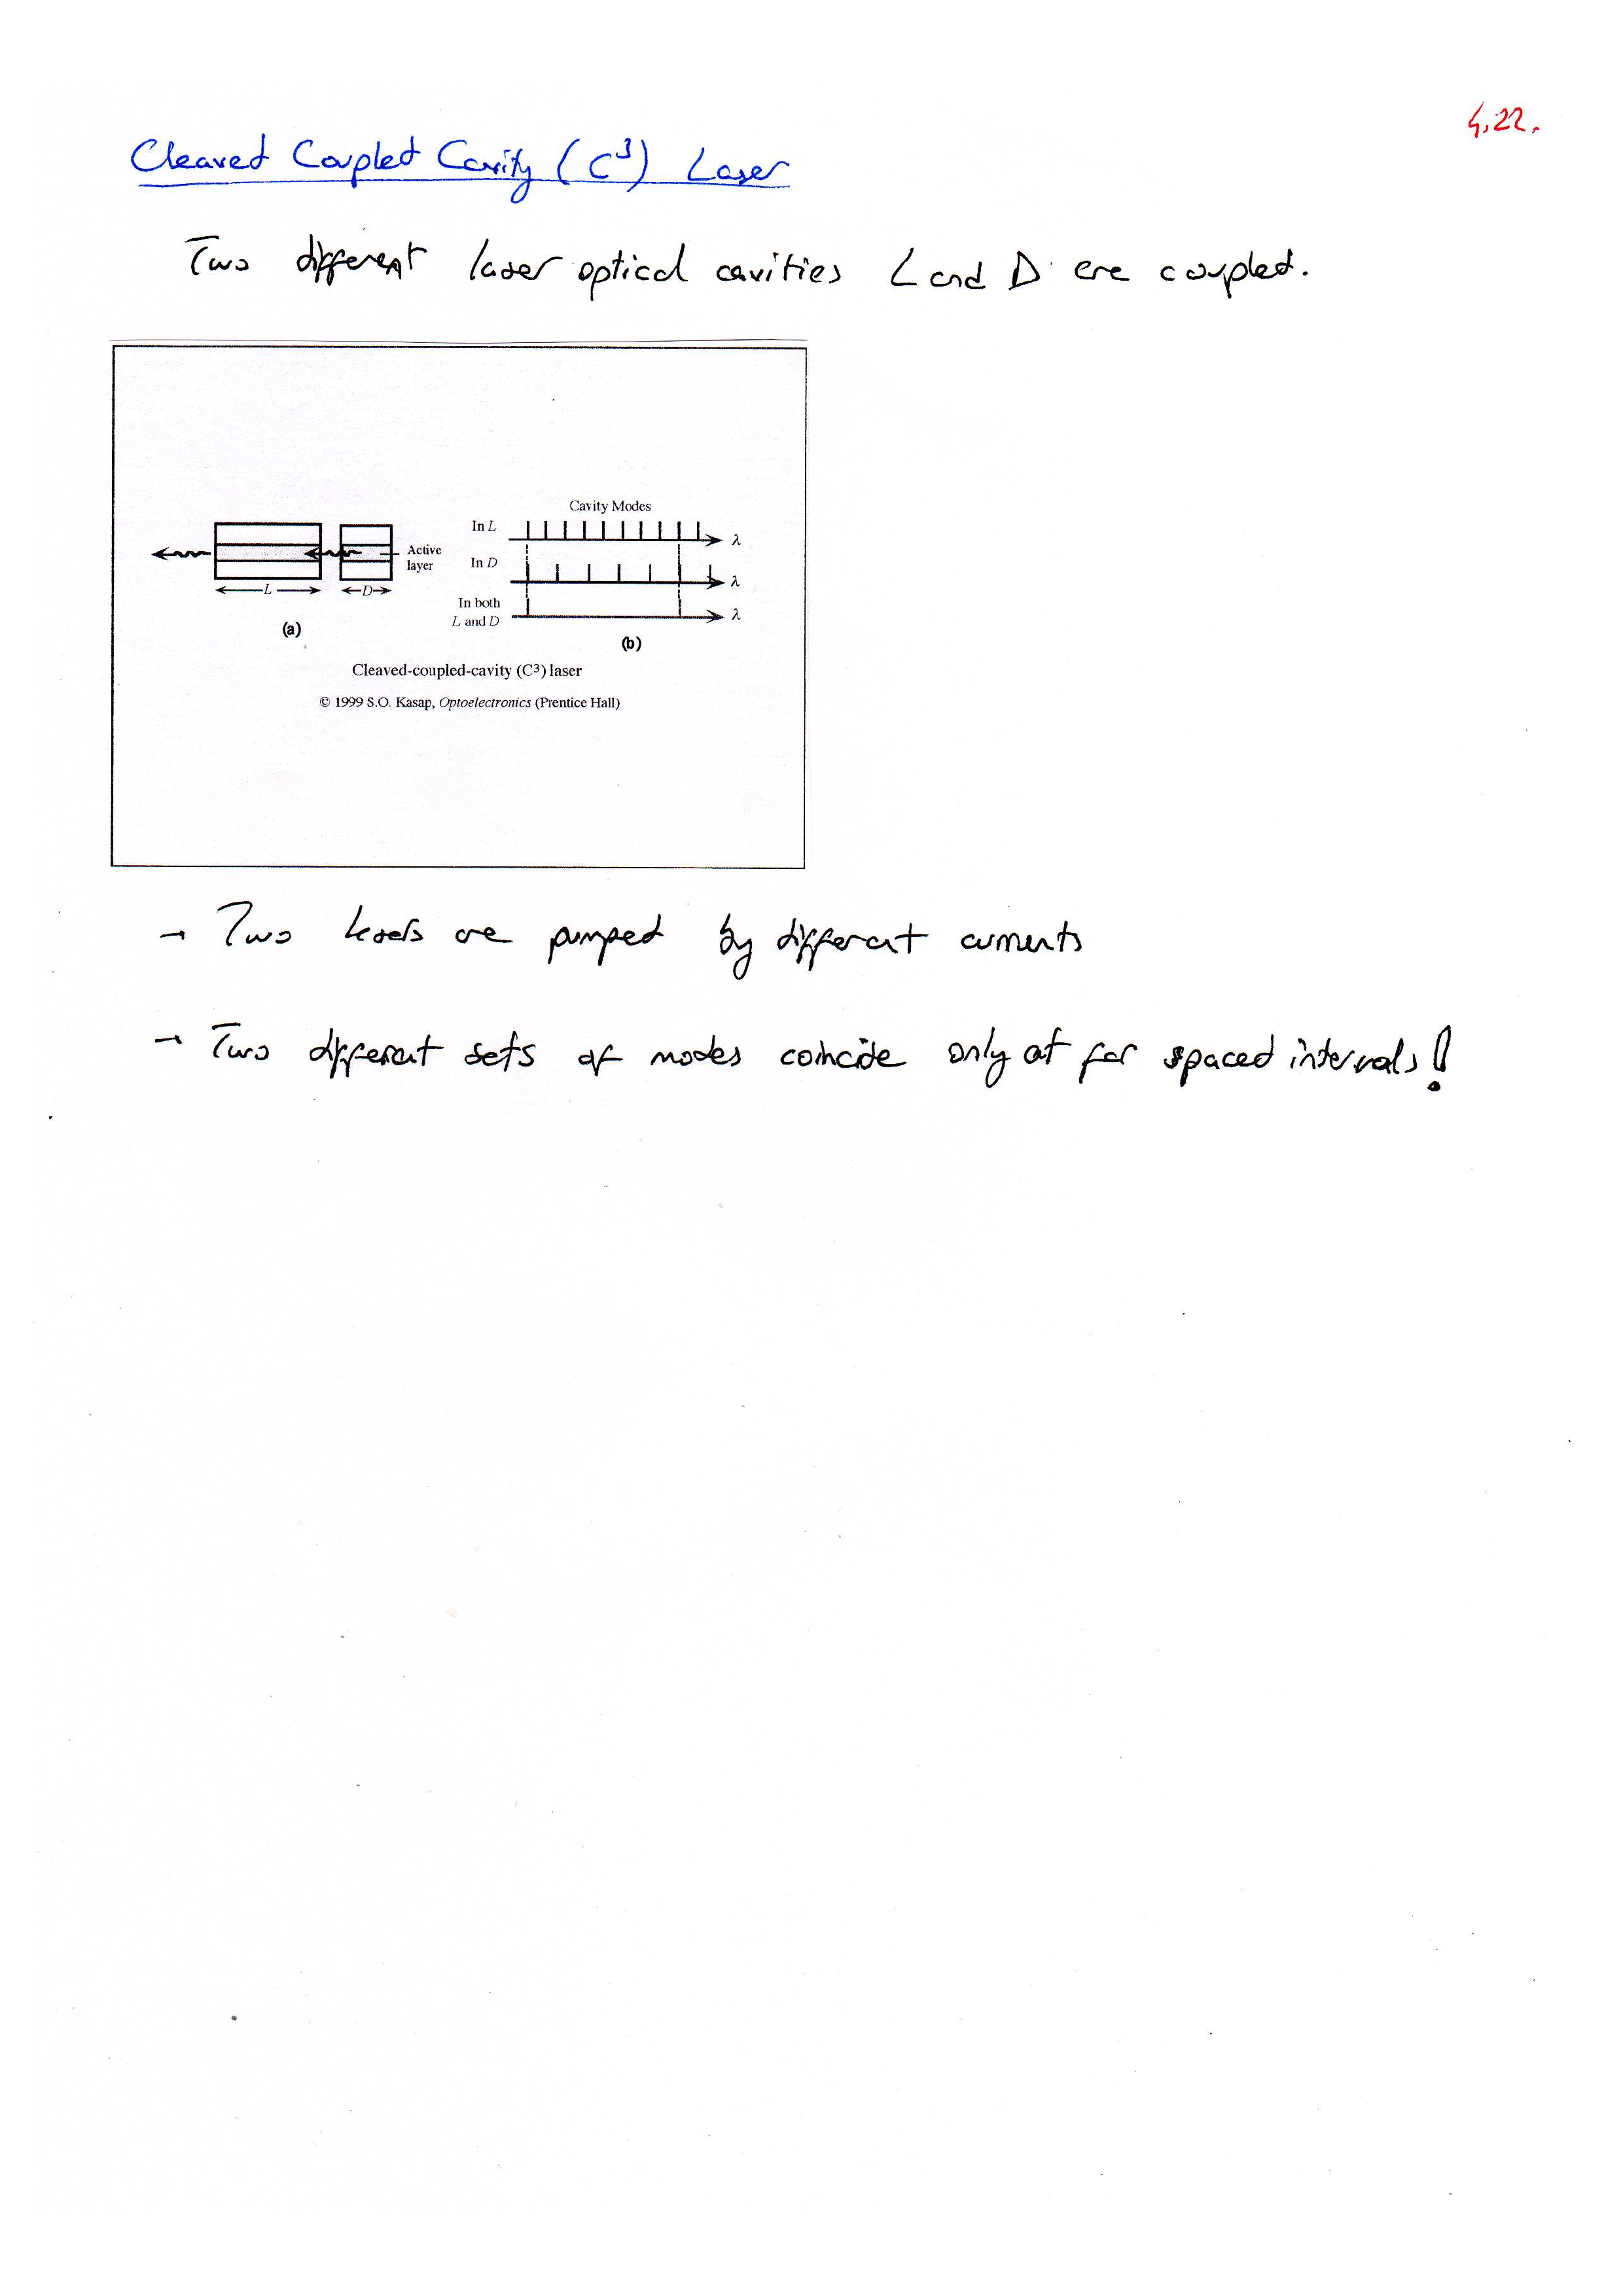 4.22.
Cleaved Coupled Cavity (C³) Laser
Two different laser optical cavities L and D are coupled.
Cavity Modes
In L
λ
Active
layer
In D
λ
L
D
In both
L and D
λ
(a)
(b)
Cleaved-coupled-cavity (C³) laser
© 1999 S.O. Kasap, Optoelectronics (Prentice Hall)
→ Two lasers are pumped by different currents
→ Two different sets of modes coincide only at far spaced intervals!